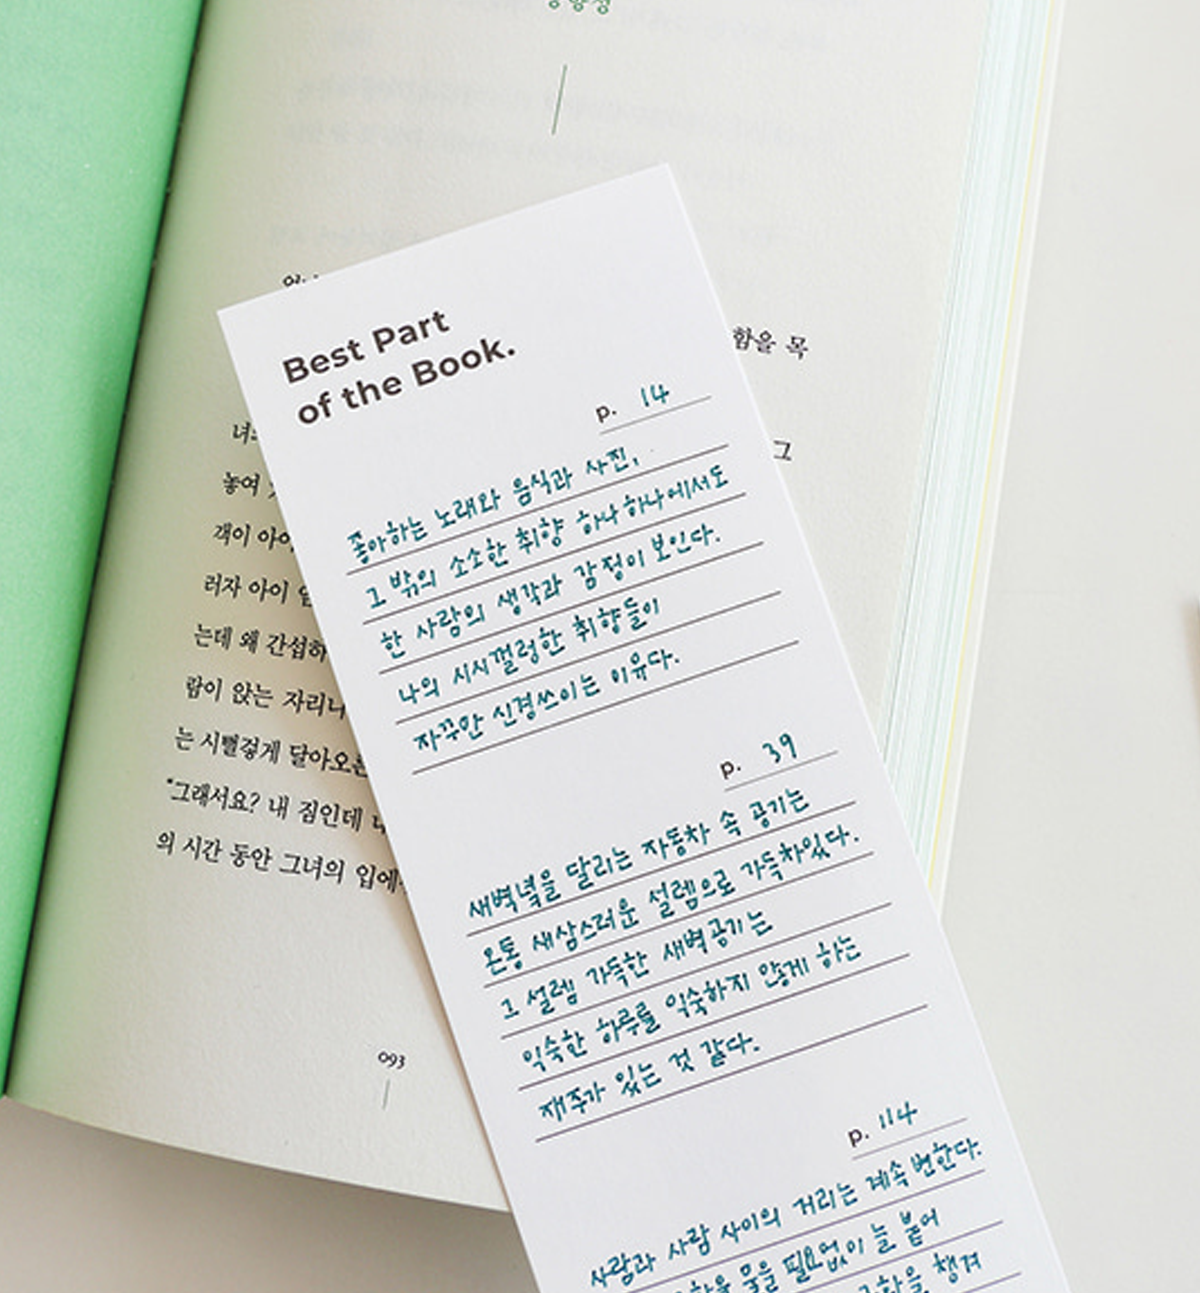 함을 목
그
놓여
객이
러자 아이
는데 왜 간섭하
람이 앉는 자리니
는 시뻘겋게 달아오른
"그래서요? 내 짐인데
의 시간 동안 그녀의 입에
093
Best Part
of the Book.
p. 14
좋아하는 노래와 음식과 사진,
그 밖의 소소한 취향 하나하나에서도
한 사람의 생각과 감정이 보인다.
나의 시시껄렁한 취향들이
자꾸만 신경쓰이는 이유다.
p. 39
새벽녘을 달리는 자동차 속 공기는
온통 새삼스러운 설렘으로 가득차있다.
그 설렘 가득한 새벽공기는
익숙한 하루를 익숙하지 않게 하는
재주가 있는 것 같다.
p. 114
사람과 사람 사이의 거리는 계속 변한다.
필요없이 늘 붙어
챙겨